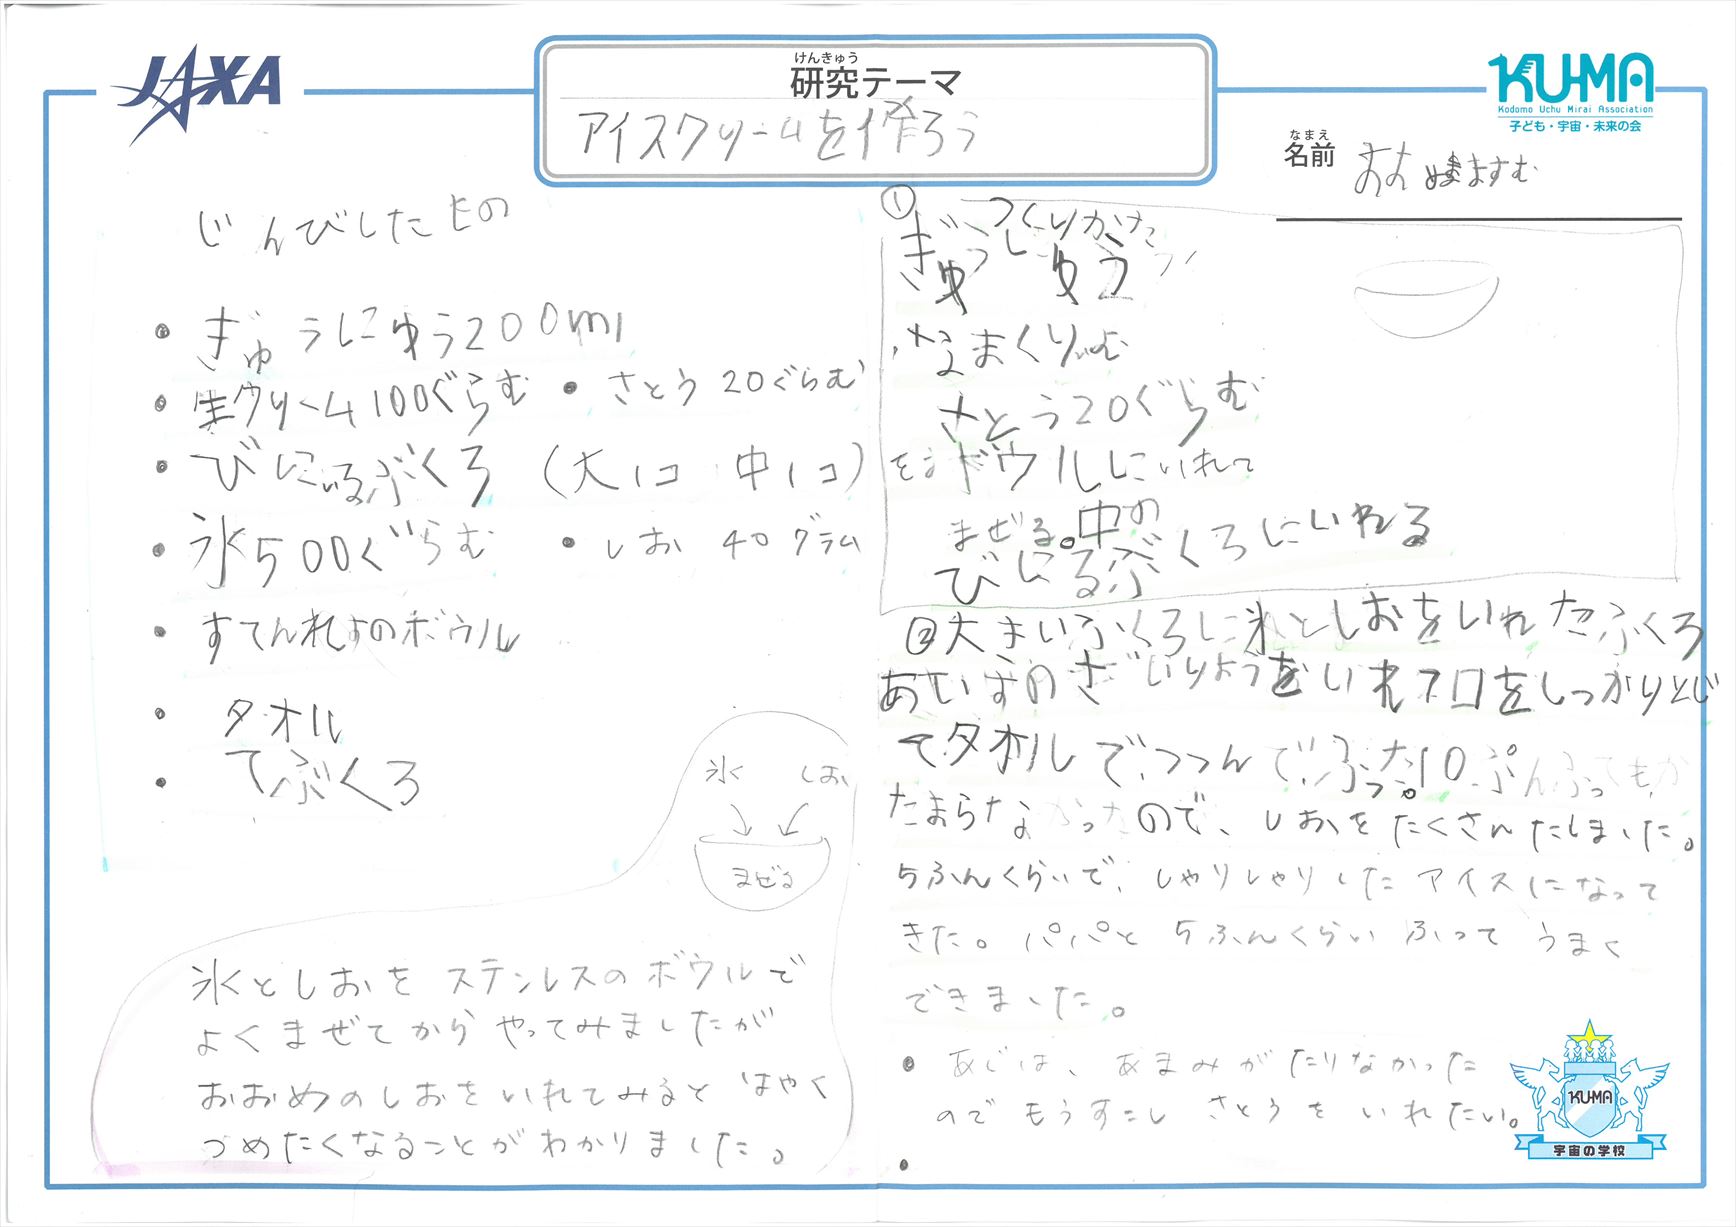 JAXA
けんきゅう
研究テーマ
アイスクリームを作ろう
KU-MA
Kodomo Uchu Mirai Association
子ども・宇宙・未来の会
なまえ
名前
じゅんびしたもの
・ぎゅうにゅう200ml
・生クリーム100ぐらむ ・さとう 20ぐらむ
・びにいるぶくろ (大1コ 中1コ)
・氷500ぐらむ ・しお 40グラム
・すてんれすのボウル
・タオル
・てぶくろ
氷 しお
まぜる
氷としおをステンレスのボウルで
よくまぜてからやってみましたが
おおめのしおをいれてみるとはやく
つめたくなることがわかりました。
① つくりかた
ぎゅうにゅう
なまくりいむ
さとう20ぐらむ
をボウルにいれて
まぜる。中の
びにるぶくろにいれる
②大きいふくろに氷としおをいれたふくろ
あいすのざいりようをいれて口をしっかりとじ
てタオルでつつんでふった。10ぷんふってもか
たまらなかったので、しおをたくさんたしました。
5ふんくらいで、しゃりしゃりしたアイスになって
きた。パパと5ふんくらいふってうまく
できました。
・あじは、あまみがたりなかった
のでもうすこしさとうをいれたい。
KU-MA
宇宙の学校